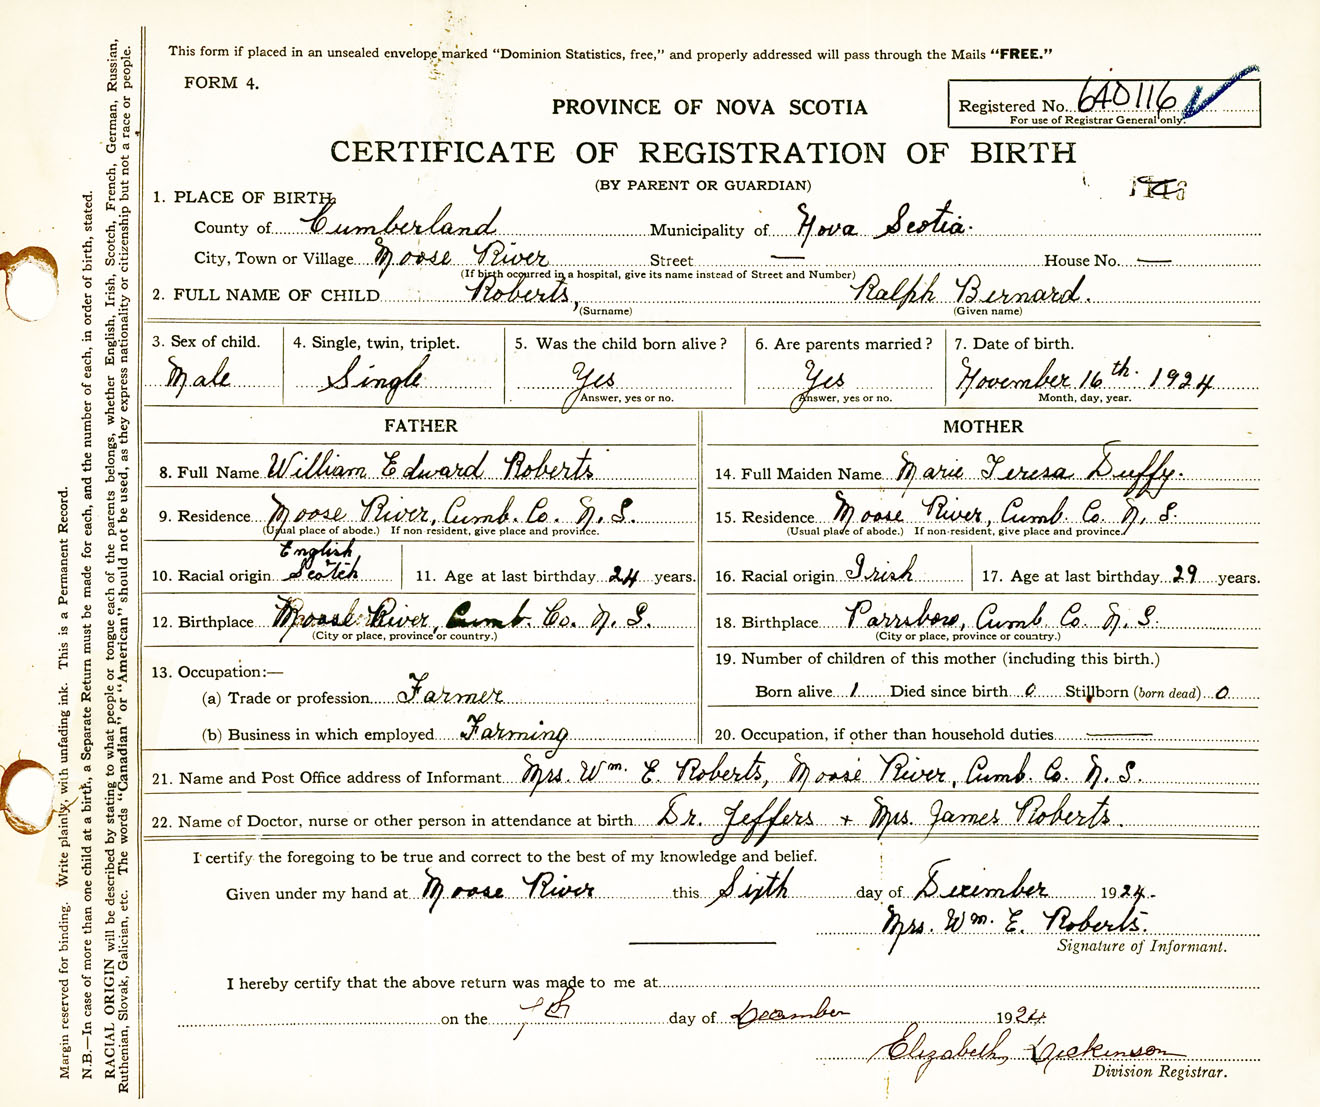 This form if placed in an unsealed envelope marked "Dominion Statistics, free," and properly addressed will pass through the Mails "FREE."
FORM 4.
PROVINCE OF NOVA SCOTIA
Registered No. 640116
For use of Registrar General only.
CERTIFICATE OF REGISTRATION OF BIRTH
(BY PARENT OR GUARDIAN)
1. PLACE OF BIRTH
County of Cumberland Municipality of Nova Scotia.
City, Town or Village Moose River Street — House No. —
(If birth occurred in a hospital, give its name instead of Street and Number)
2. FULL NAME OF CHILD Roberts, Ralph Bernard.
(Surname) (Given name)
3. Sex of child. 4. Single, twin, triplet. 5. Was the child born alive? 6. Are parents married? 7. Date of birth.
Male Single Yes Yes November 16th. 1924
Answer, yes or no. Answer, yes or no. Month, day, year.
FATHER MOTHER
8. Full Name William Edward Roberts 14. Full Maiden Name Marie Teresa Duffy.
9. Residence Moose River, Cumb. Co. N. S. 15. Residence Moose River, Cumb. Co. N. S.
(Usual place of abode.) If non-resident, give place and province. (Usual place of abode.) If non-resident, give place and province.
English
10. Racial origin Scotch 11. Age at last birthday 24 years. 16. Racial origin Irish 17. Age at last birthday 29 years.
12. Birthplace Moose River, Cumb. Co. N. S. 18. Birthplace Parrsboro, Cumb Co. N. S.
(City or place, province or country.) (City or place, province or country.)
13. Occupation:— 19. Number of children of this mother (including this birth.)
(a) Trade or profession Farmer Born alive 1 Died since birth 0 Stillborn (born dead) 0
(b) Business in which employed Farming 20. Occupation, if other than household duties —
21. Name and Post Office address of Informant Mrs. Wm. E. Roberts, Moose River, Cumb. Co. N. S.
22. Name of Doctor, nurse or other person in attendance at birth Dr. Jeffers + Mrs. James Roberts.
I certify the foregoing to be true and correct to the best of my knowledge and belief.
Given under my hand at Moose River this Sixth day of December 1924.
Mrs. Wm. E. Roberts.
Signature of Informant.
I hereby certify that the above return was made to me at
on the 7th day of December 1924
Elizabeth Dickinson
Division Registrar.
Margin reserved for binding. Write plainly, with unfading ink. This is a Permanent Record.
N.B.—In case of more than one child at a birth, a Separate Return must be made for each, and the number of each, in order of birth, stated.
RACIAL ORIGIN will be described by stating to what people or tongue each of the parents belongs, whether English, Irish, Scotch, French, German, Russian,
Ruthenian, Slovak, Galician, etc. The words "Canadian" or "American" should not be used, as they express nationality or citizenship but not a race or people.